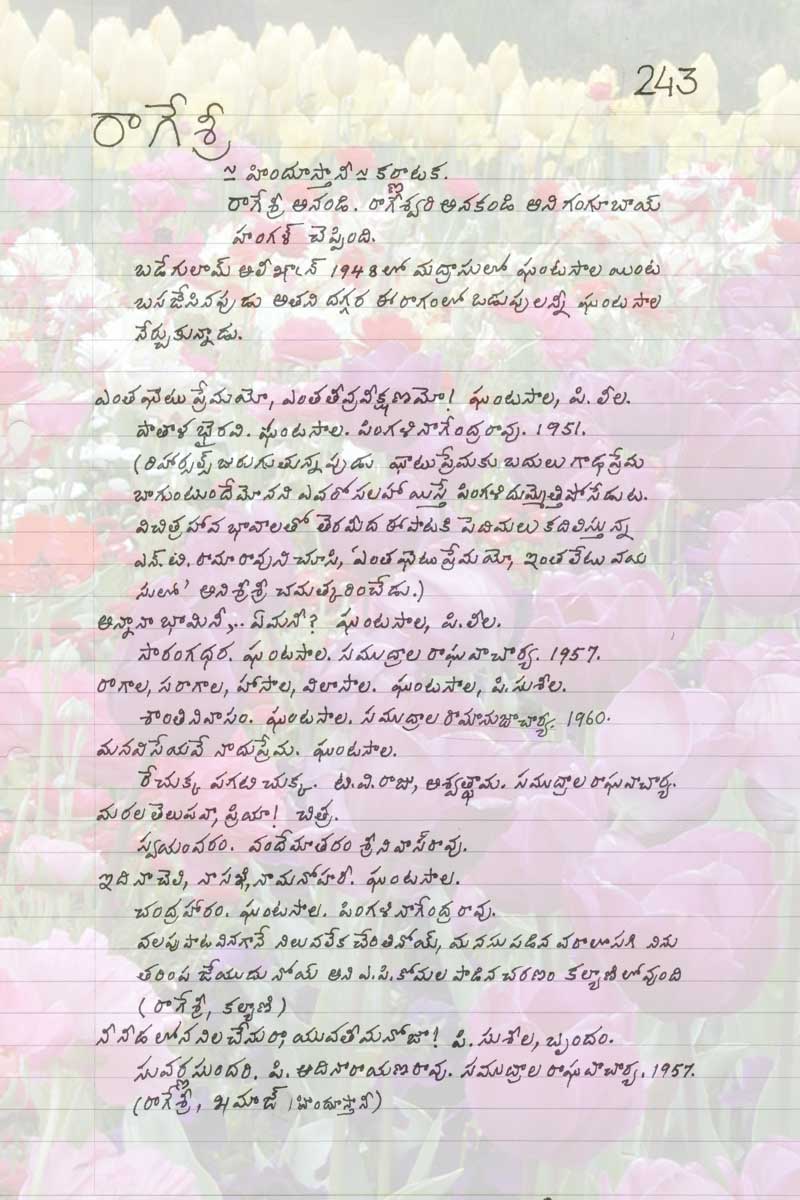 243
రాగేశ్రీ
~ హిందూస్తానీ ~ కర్ణాటక.
రాగేశ్రీ అనండి. రాగేశ్వరి అనకండి అని గంగూబాయ్
హంగళ్ చెప్పింది.
బడేగులామ్ అలీఖాన్ 1948 లో మద్రాసులో ఘంటసాల యింట
బసజేసినపుడు అతని దగ్గర ఈ రాగంలో ఒడుపులన్నీ ఘంటసాల
నేర్చుకున్నాడు.
ఎంత ఘాటు ప్రేమయో, ఎంత తీవ్రవీక్షణమో! ఘంటసాల, పి. లీల.
పాతాళ భైరవి. ఘంటసాల. పింగళి నాగేంద్రరావు. 1951.
(రిహార్సల్స్ జరుగుతున్నపుడు ఘాటు ప్రేమకు బదులు గాఢప్రేమ
బాగుంటుందేమోనని ఎవరో సలహా యిస్తే పింగళి దుమ్మెత్తిపోసేడుట.
విచిత్ర హావ భావాలతో తెరమీద ఈ పాటకి పెదిమలు కదిలిస్తున్న
ఎన్.టి. రామారావుని చూసి, 'ఎంత ఘాటు ప్రేమయో, ఇంత లేటు వయ
సులో' అని శ్రీశ్రీ చమత్కరించేడు.)
అన్నానా భామినీ,.. ఏమనీ? ఘంటసాల, పి.లీల.
సారంగధర. ఘంటసాల. సముద్రాల రాఘవాచార్య. 1957.
రాగాల, సరాగాల, హాసాల, విలాసాల. ఘంటసాల, పి.సుశీల.
శాంతినివాసం. ఘంటసాల. సముద్రాల రామానుజాచార్య. 1960.
మనవిసేయవే నాదుప్రేమ. ఘంటసాల.
రేచుక్క పగటి చుక్క. టి.వి.రాజు, అశ్వత్థామ. సముద్రాల రాఘవాచార్య.
మరల తెలుపనా, ప్రియా! చిత్ర.
స్వయంవరం. వందేమాతరం శ్రీనివాస్‌రావు.
ఇది నా చెలి, నా సఖి, నా మనోహరి. ఘంటసాల.
చంద్రహారం. ఘంటసాల. పింగళి నాగేంద్ర రావు.
వలపు పాట వినగానే నిలువలేక చేరితినోయ్, మనసు పడిన వరాలొసగి నిను
తరింప జేయుదునోయ్ అని ఎ.పి.కోమల పాడిన చరణం కల్యాణి లోవుంది
(రాగేశ్రీ, కల్యాణి)
నీ నీడ లోన నిలచేనురా, యువతీమనోజా! పి. సుశీల, బృందం.
సువర్ణ సుందరి. పి. ఆదినారాయణరావు. సముద్రాల రాఘవాచార్య. 1957.
(రాగేశ్రీ, ఖమాజ్ / హిందూస్తానీ)